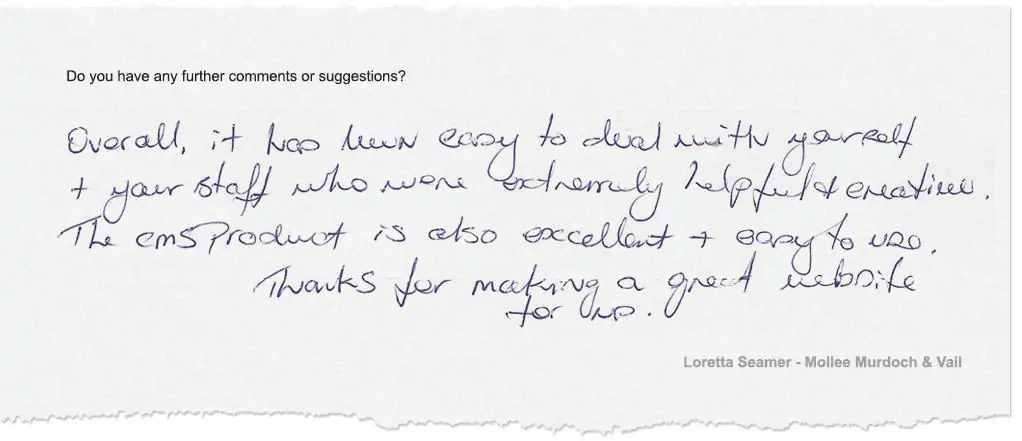 Do you have any further comments or suggestions?
Overall, it has been easy to deal with yourself
+ your staff who were extremely helpful + creative.
The cms Product is also excellent + easy to use.
Thanks for making a great website
for us.
Loretta Seamer - Mollee Murdoch & Vail